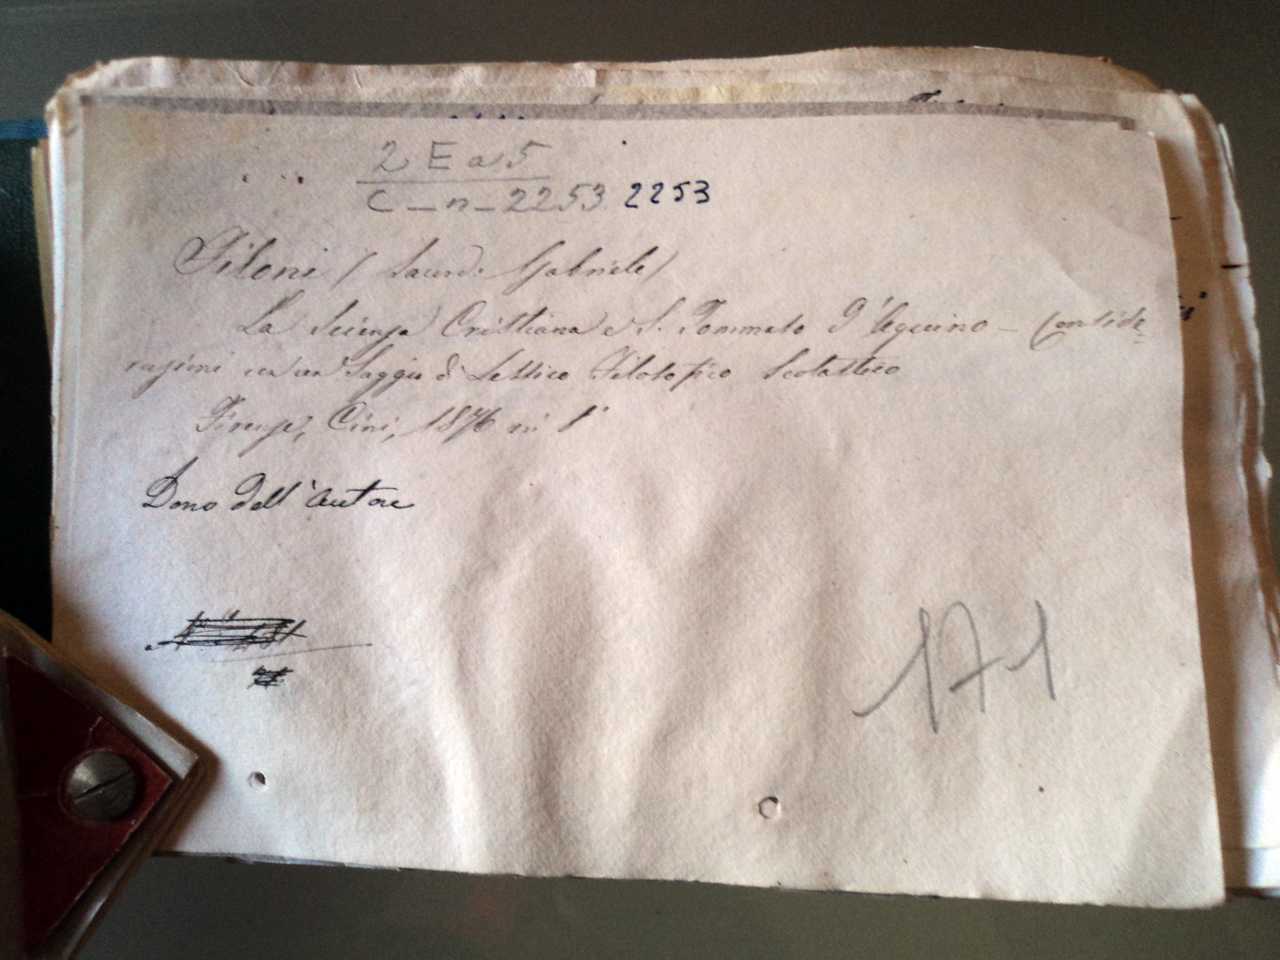 2 E a 5
C - n - 2253 2253
Filoni ( Sacerd. Gabriele )
La Scienza Cristiana e S. Tommaso d'Aquino - Conside-
razioni un Saggio di Lessico Filosofico Scolastico
Firenze, Cini, 1876 in 8°
Dono dell'autore
171